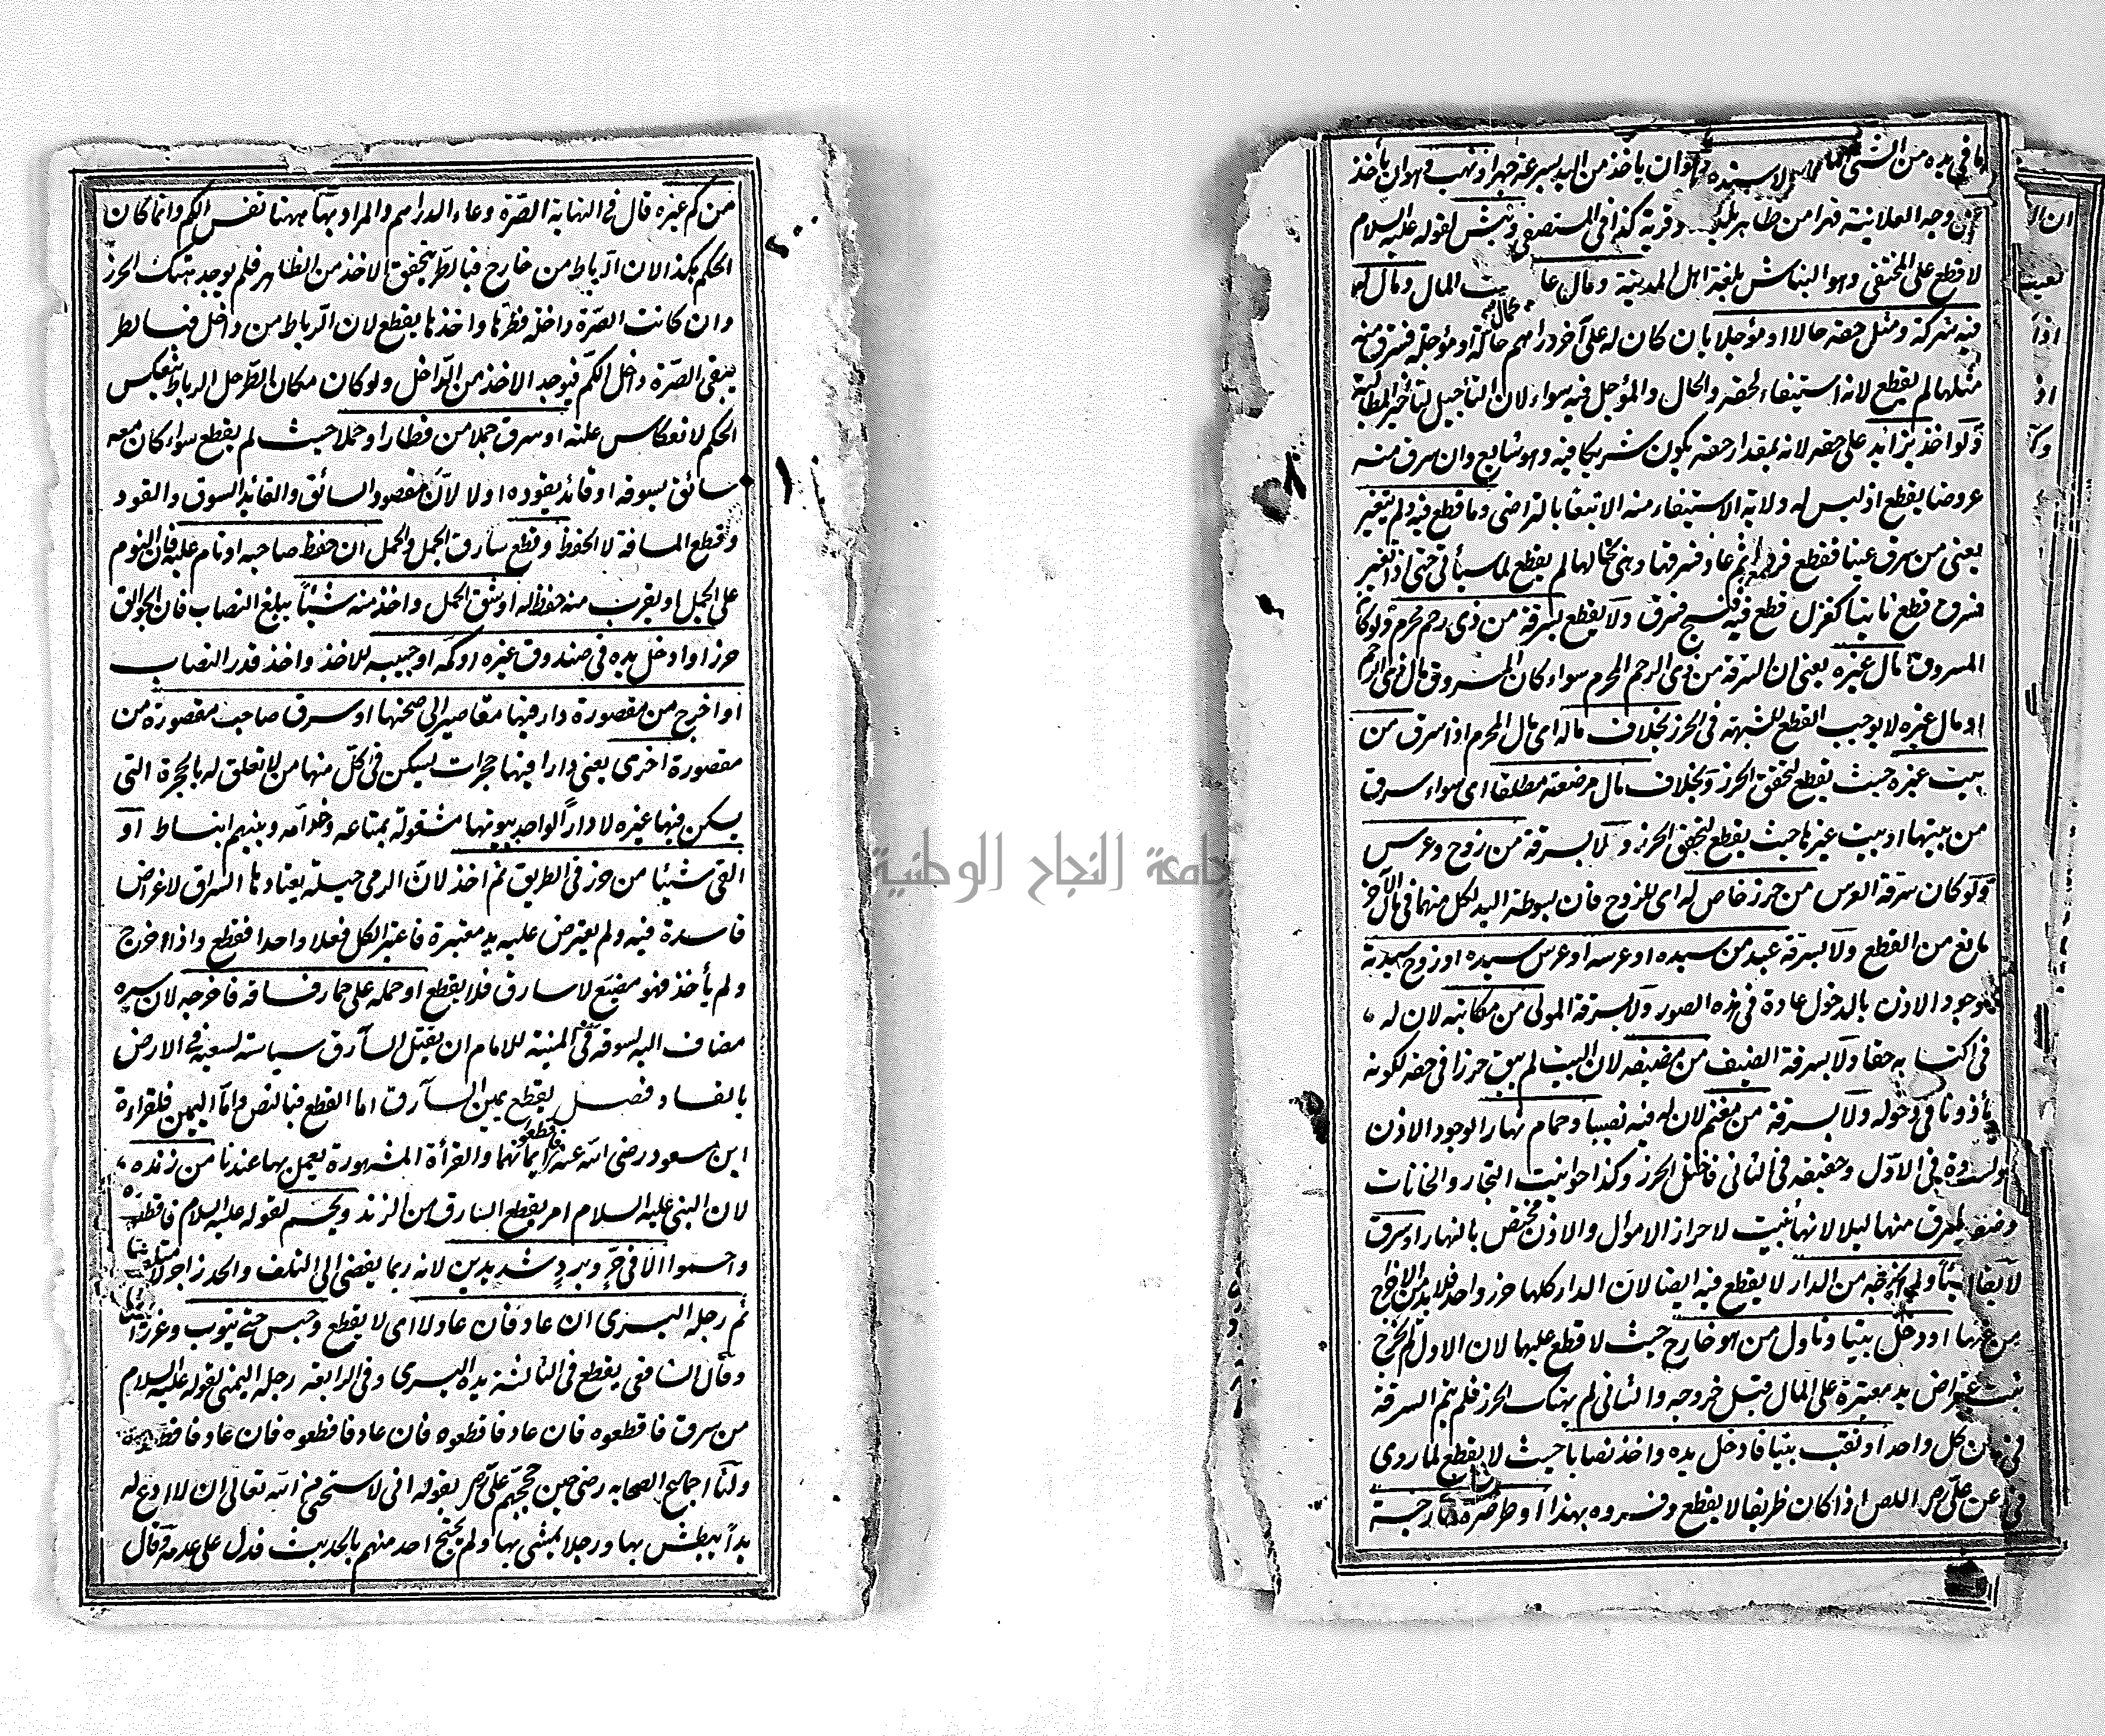 ما في يده من الشئ لاسيده وهو ان ياخذ من اليد بسرعة جهرا ونهب وهو ان يأخذ
من وجه العلانية قهرا من ظاهر وقرية كذا في المستصفى ونبش لقوله عليه السلام
لا قطع على المختفي وهو النباش بلغة اهل المدينة ومال عا ت المال ومال له
فيه شركة ومثل حقه حالا او مؤجلا بان كان له على آخر دراهم حالة او مؤجلة فسرق منه
مثلها لم يقطع لانه استيفاء لحقه والحال والمؤجل فيه سواء لان التأجيل لتأخير المطالبة
ولو اخذ بزائد على حقه لانه بمقدار حقه يكون شريكا فيه وهو شايع وان سرق منه
عروضا يقطع اذ ليس له ولاية الاستيفاء منه الا بيعا بالتراضي وما قطع فيه ولم يتغير
يعني من سرق عينا فقطع فردها ثم عاد فسرقها وهي بحالها لم يقطع لما سيأتي حتى اذا تغير
فسرق قطع ثانيا كغزل قطع فيه فنسج فسرق ولا يقطع بسرقة من ذي رحم محرم ولو كا
المسروق مال غيره يعني ان السرقة من ذي الرحم المحرم سواء كان المسروق مال ذي الرحم
او مال غيره لا يوجب القطع للشبهة في الحرز بخلاف ماله اي مال المحرم اذا سرق من
بيت غيره حيث يقطع لتحقق الحرز وبخلاف مال مرضعته مطلقا اي سواء سرق
من بيتها او بيت غيرها حيث يقطع لتحقق الحرز ولا بسرقة من زوج وعرس
ولو كان سرقة العرس من حرز خاص له اي للزوج فان بسوطة اليد لكل منهما في مال الآخر
مانع من القطع ولا بسرقة عبد من سيده او عرسه او عرس سيده او زوج سيدته
لوجود الاذن بالدخول عادة في هذه الصور ولا بسرقة المولى من مكاتبه لان له
في اكتسابه حقا ولا بسرقة الضيف من مضيفه لان البيت لم يبق حرزا في حقه لكونه
مأذونا في دخوله ولا بسرقة من مغنم لان له فيه نصيبا وحمام نهارا لوجود الاذن
في الاول وحقيقه في الثاني فاختل الحرز وكذا حوانيت التجار والخانات
يسرق منها ليلا لانها بنيت لاحراز الاموال والاذن مختص بالنهار او سرق
شيئا ولم يخرجه من الدار لا يقطع فيه ايضا لان الدار كلها حرز واحد فلا بد من الاخراج
عنها او دخل بيتا وناول من هو خارج حيث لا قطع عليهما لان الاول لم يخرج
اعتراض يد معتبرة على المال قبل خروجه والثاني لم يهتك الحرز فلم يتم السرقة
من كل واحد او نقب بيتا فادخل يده واخذ نصابا حيث لا يقطع لما روي
عن علي رض اللص اذا كان ظريفا لا يقطع وفسروه بهذا او طر صرة خارجة
من كم غيره قال في النهاية الصرة وعاء الدراهم والمراد بها ههنا نفس الكم وانما كان
الحكم هكذا لان الرباط من خارج فبالطر يتحقق الاخذ من الظاهر فلم يوجد هتك الحرز
وان كانت الصرة داخلة فطرها واخذها يقطع لان الرباط من داخل فبالطر
يبقى الصرة داخل الكم فيوجد الاخذ من الداخل ولو كان مكان الطر حل الرباط ينعكس
الحكم لانعكاس علته او سرق جملا من قطار او حملا حيث لم يقطع سواء كان معه
سائق يسوقه او قائد يقوده اولا لان مقصود السائق والقائد السوق والقود
وقطع المسافة لا الحفظ وقطع سارق الجمل والحمل ان حفظ صاحبه او نام عليه فان النوم
على الحمل او بقرب منه حفظ له او شق الحمل واخذ منه شيئا يبلغ النصاب فان الجوالق
حرز او ادخل يده في صندوق غيره او كمه او جيبه للاخذ واخذ قدر النصاب
او اخرج من مقصورة دار فيها مقاصير الى صحنها او سرق صاحب مقصورة من
مقصورة اخرى يعني دارا فيها حجرات يسكن في كل منها من لا تعلق له بالحجرة التي
يسكن فيها غيره لا دارا لواحد بيوتها مشغولة بمتاعه وخدامه وبينهم انبساط او
القى شيئا من حرز في الطريق ثم اخذ لان الرمي حيلة يعتادها السراق لاغراض
فاسدة فيه ولم يعترض عليه يد معتبرة فاعتبر الكل فعلا واحدا فقطع واذا اخرج
ولم يأخذ فهو مضيع لا سارق فلا يقطع او حمله على حمار فساقه فاخرجه لان سيره
مضاف اليه لسوقه في المنية للامام ان يقتل السارق سياسة لسعيه في الارض
بالفساد فصل يقطع يمين السارق اما القطع فبالنص واما اليمين فلقراءة
ابن مسعود رضي الله عنه فاقطعوا ايمانهما والقرأة المشهورة يعمل بها عندنا من زنده
لان النبي عليه السلام امر بقطع السارق من الزند ويحسم لقوله عليه السلام فاقطعوه
واحسموا الا في حر وبرد شديدين لانه ربما يفضي الى التلف والحد زاجر لا متلف
ثم رجله اليسرى ان عاد فان عاد لا اي لا يقطع وحبس حتى يتوب وعزر ايضا
وقال الشافعي يقطع في الثالثة يده اليسرى وفي الرابعة رجله اليمنى لقوله عليه السلام
من سرق فاقطعوه فان عاد فاقطعوه فان عاد فاقطعوه فان عاد فاقطعوه
ولنا اجماع الصحابة رض حين حجهم علي رض بقوله اني لاستحيي من الله تعالى ان لا ادع له
يدا يبطش بها ورجلا يمشي بها ولم يحتج احد منهم بالحديث فدل على عدمه وقال
جامعة النجاح الوطنية